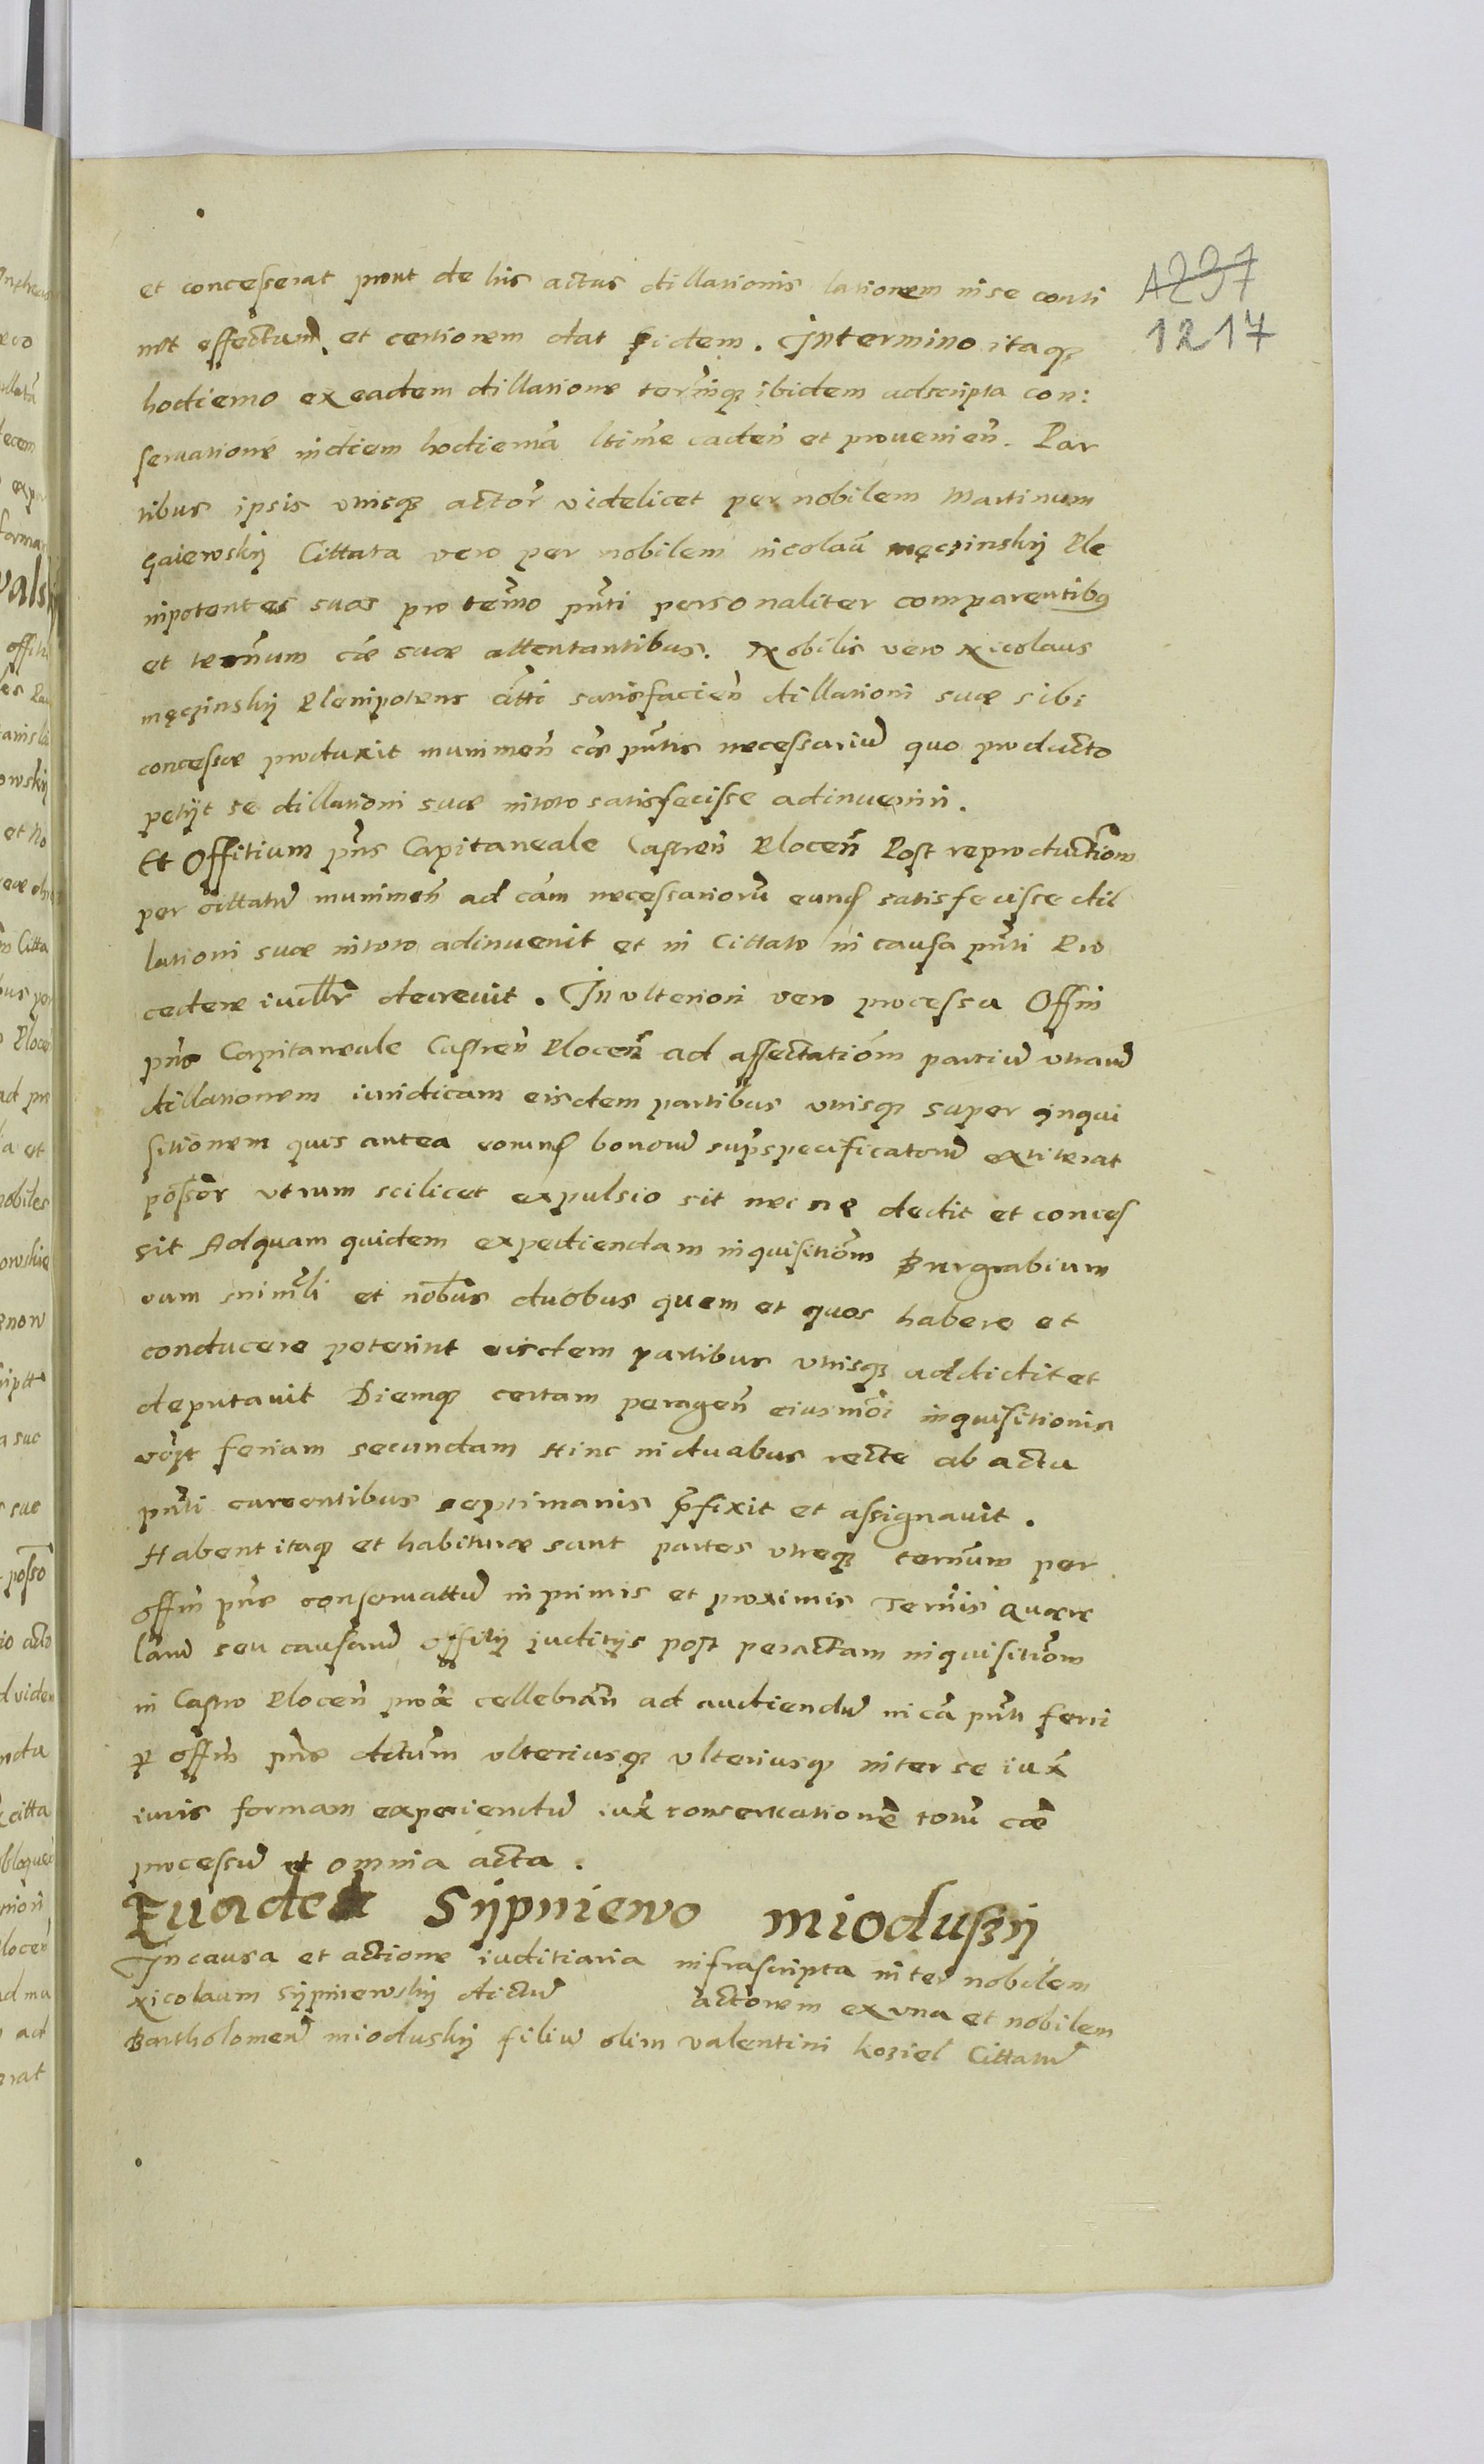 1237
1217
et concesserat prout de his actus dillationis lationem in se conti
net effectum, et certiorem dat fidem. In termino itaq3
hodierno ex eadem dillatione terīnq3 ibidem adscripta con:
servatione in diem hodiernā ltime caden̄ et provenien̄. Par
tibus ipsis vtrisq3 actor̄ videlicet per nobilem Martinum
Gaiewskij Cittata vero per nobilem nicolaū męczinskij Ple
nipotentes suos pro ter̄mo pn̄ti personaliter comparentibus
et ter̄num cæ suæ attentantibus. Nobilis vero Nicolaus
męczinskij Plenipotens citti satisfacien̄ dillationi suæ sibi
concessæ produxit munimen̄ cæ pn̄tis necessariū quo producto
petijt se dillationi suæ in toto satisfecisse adinueniri.
Et Offitium pn̄s Capitaneale Castren̄ Plocen̄ Post reproductiōm
per cittatū munimen̄ ad cām necessariorū eund satisfecisse dil
lationi suæ in toto adinuenit et in Cittato in causa pn̄ti Pro
cedere iudllr̄ decrevit. In vlteriori vero processu Offm̄
pn̄s Capitaneale Castren̄ Plocen̄ ad affectatiōm partiū vtrarū
dillationem iuridicam eisdem partibus vtrisq3 super inqui
sitionem quis antea eorund bonorū supspecificatorū extiterat
possor̄ vtrum scilicet expulsio sit nec ne dedit et conces
sit Ad quam quidem expediendam inquisitiōm Burgrabium
cum min̄li et nōbus duobus quem et quos habere et
conducere poterint eisdem partibus vtrisq3 addidit et
deputavit Diemq3 certam peragen̄ eiusmōi inquisitionis
vdzt feriam secundam hinc in duabus recte ab actu
pn̄ti currentibus septimanis p̄fixit et assignavit.
Habent itaq3 et habituræ sunt partes vtreq3 ternūm per
offm̄ pn̄s conservattū in primis et proximis Termīs Quære
larū seu causarū offitij juditijs post peractam inquisitiōm
in Castro Plocen̄ proæ cellebrān̄ ad audiendū in cā pn̄ti ferri
p offm̄ pn̄s dtūm vlteriusq3 vlteriusq3 inter se iux̄
iuris formam experiendū iux̄ conservationē totū cæ
processū et omnia acta.
Euade Sijpniewo miodusky
In causa et actione iuditiaria infrascripta inter nobilem
Nicolaum Sijpniewskij dictū actorem ex vna et nobilem
Bartholomeū mioduskij filiū olim valentini koziel Cittatū